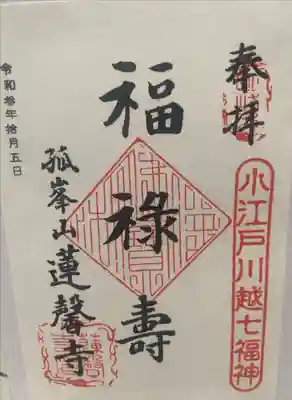 奉拝
小江戸川越七福神
福祿壽
孤峯山蓮馨寺
令和参年拾月五日